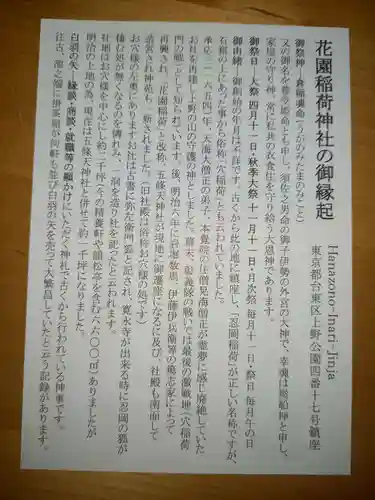 花園稲荷神社の御縁起
Hanazono-Inari-Jinja
東京都台東区上野公園四番十七号鎮座
御祭神―倉稲魂命(うかのみたまのみこと)
又の御名を豊受姫命とも申し、須佐之男命の御子、伊勢の外宮の大神で、幸魂は船と申し、
家屋の守り神、常に私共の衣食住を守り給う大恩神であります。
御祭日―大祭 四月十一日・秋季大祭 十一月十一日・月次祭 毎月十一日・祭日 毎月午の日
御由緒―御創祀の年月は不詳です。古くから此の地に鎮座し、「忍岡稲荷」が正しい名称ですが、
石窟の上にあった事から俗称「穴稲荷」とも云われていました。
承応三(一六五四)年、天海大僧正の弟子、本覚院の住僧晃海僧正が霊夢に感じ廃絶していた
お社を再建し上野の山の守護の神としました。幕末、彰義隊の戦いでは最後の激戦地「穴稲荷
門の戦」として知られています。後、明治六年に岩堀数馬、伊藤伊兵衛等の篤志家によって
再興され、「花園稲荷」と改称、五條天神社が現地に御遷座になるに及び、社殿も南面して
造営され神苑も一新されました。(旧社殿は俗称お穴様の処です)
お穴様の左奥にありますお社は古書に弥左衛門狐と記され、寛永寺が出来る時に忍岡の狐が
棲む処が無くなるのを憐れみ、一洞を造り社を祀ったと云われます。
社地はお穴様を中心にし約二千坪(今の精養軒や韻松亭を含む六六〇〇㎡)ありましたが
明治の上地の為、現在は五條天神社と併せて約一千坪になりました。
白羽の矢―縁談・商談・就職等の願かけにいただく神札で古くから行われている神事です。
往古、池之端に掛茶屋が何軒も並び白羽の矢を売って大繁昌していたと云う記録があります。